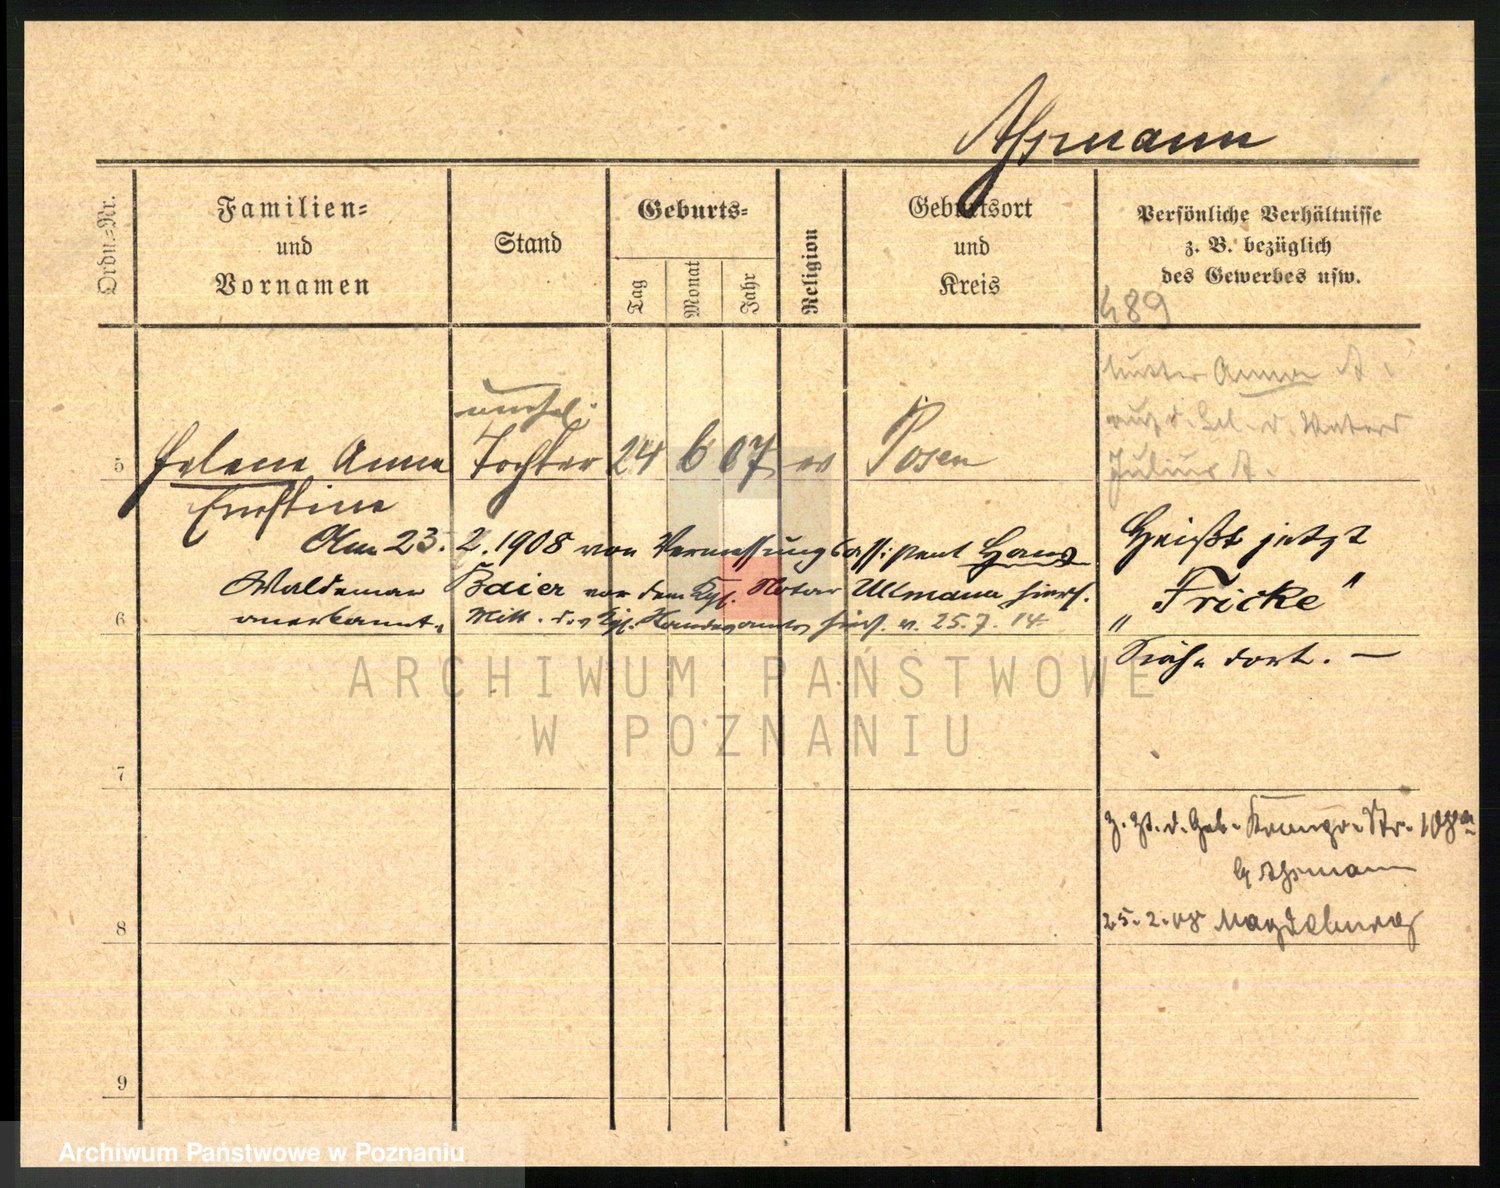 Ahrmann
Ordn.-Nr.
Familien-
und
Vornamen
Stand
Geburts-
Tag
Monat
Jahr
Religion
Geburtsort
und
Kreis
Persönliche Verhältnisse
z. B. bezüglich
des Gewerbes usw.
489
Mutter Anna A.
Julius A.
unehel.
5 Helene Anna Tochter 24 6 07 ev Posen
Ernstine
Am 23. 2. 1908 von Vermessungsassistent Hans
Waldemar Baier vor dem Kgl. Notar Ullmann hiers.
anerkannt. Mitt. des Kgl. Standesamtes hier v. 25.7.14.
Heißt jetzt
„Fricke"
Siehe dort. —
6
7
z. Zt. d. Geb. Str. 10
b/ Ahrmann
25.2.08 Magdeburg
8
9
ARCHIWUM PAŃSTWOWE
W POZNANIU
Archiwum Państwowe w Poznaniu